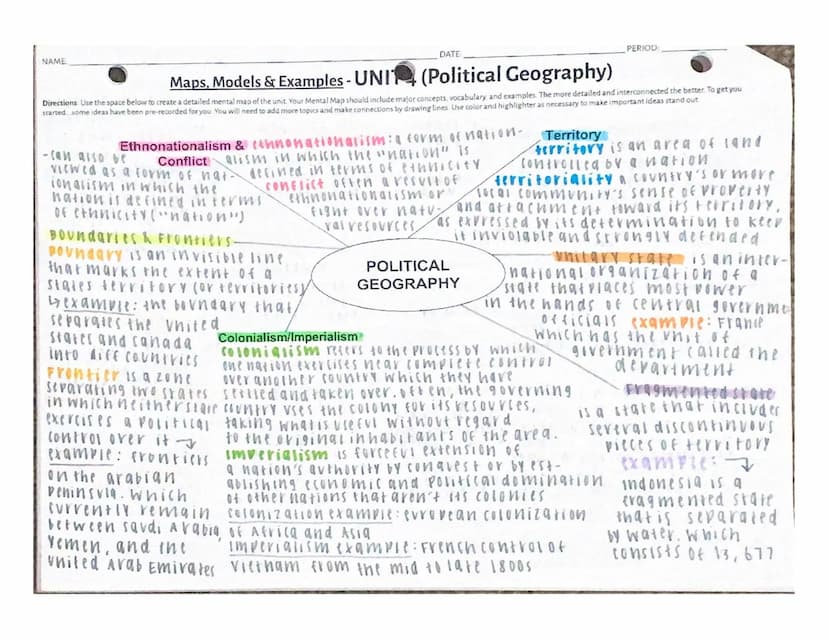 NAME: DATE: PERIOD:
Maps, Models & Examples - UNIT 4 (Political Geography)
Directions: Use the space below to create a detailed mental map of the unit. Your Mental Map should include major concepts, vocabulary, and examples. The more detailed and interconnected the better. To get
started...some ideas have been pre-recorded for you. You will need to add more topics and make connections by drawing lines. Use color and highlighter as necessary to make important ideas stand out.
Ethnonationalism &
Conflict
ethnonationalism: a form of nation-
alism in which the "nation" is
defined in terms of ethnicity
conflict often a result of
ethnonationalism or
fight over natu-
ral resources
- can also be
viewed as a form of nat-
ionalism in which the
nation is defined in terms
of ethnicity ("nation")
Territory
territory is an area of land
controlled by a nation
territoriality a country's or more
local community's sense of property
and attachment toward its territory,
as expressed by its determination to keep
it inviolable and strongly defended
Boundaries & Frontiers
Boundary is an invisible line
that marks the extent of a
states territory (or territories)
↳ example: the boundary that
separates the United
States and Canada
into diff countries
Frontier is a zone
separating two states
in which neither state
exercises a political
control over it →
example: frontiers
on the arabian
Peninsula. Which
currently remain
between Saudi Arabia,
Yemen, and the
United Arab Emirates
POLITICAL
GEOGRAPHY
Unitary state is an inter-
national organization of a
state that places most power
in the hands of central governme
officials example: France
which has the unit of
givernment called the
department
Colonialism/Imperialism
Colonialism refers to the process by which
one nation exercises near complete control
over another country which they have
settled and taken over. often, the governing
country uses the colony for its resources,
taking what is useful without regard
to the original inhabitants of the area.
Imperialism is forceful extension of
a nation's authority by conquest or by est-
ablishing economic and political domination
of other nations that aren't its colonies
colonization example: european colonization
of Africa and Asia
Imperialism example: French control of
Vietnam from the mid to late 1800s
Fragmented state
is a state that includes
several discontinuous
pieces of territory
example: →
Indonesia is a
fragmented state
that is separated
by water. Which
consists of 13,677